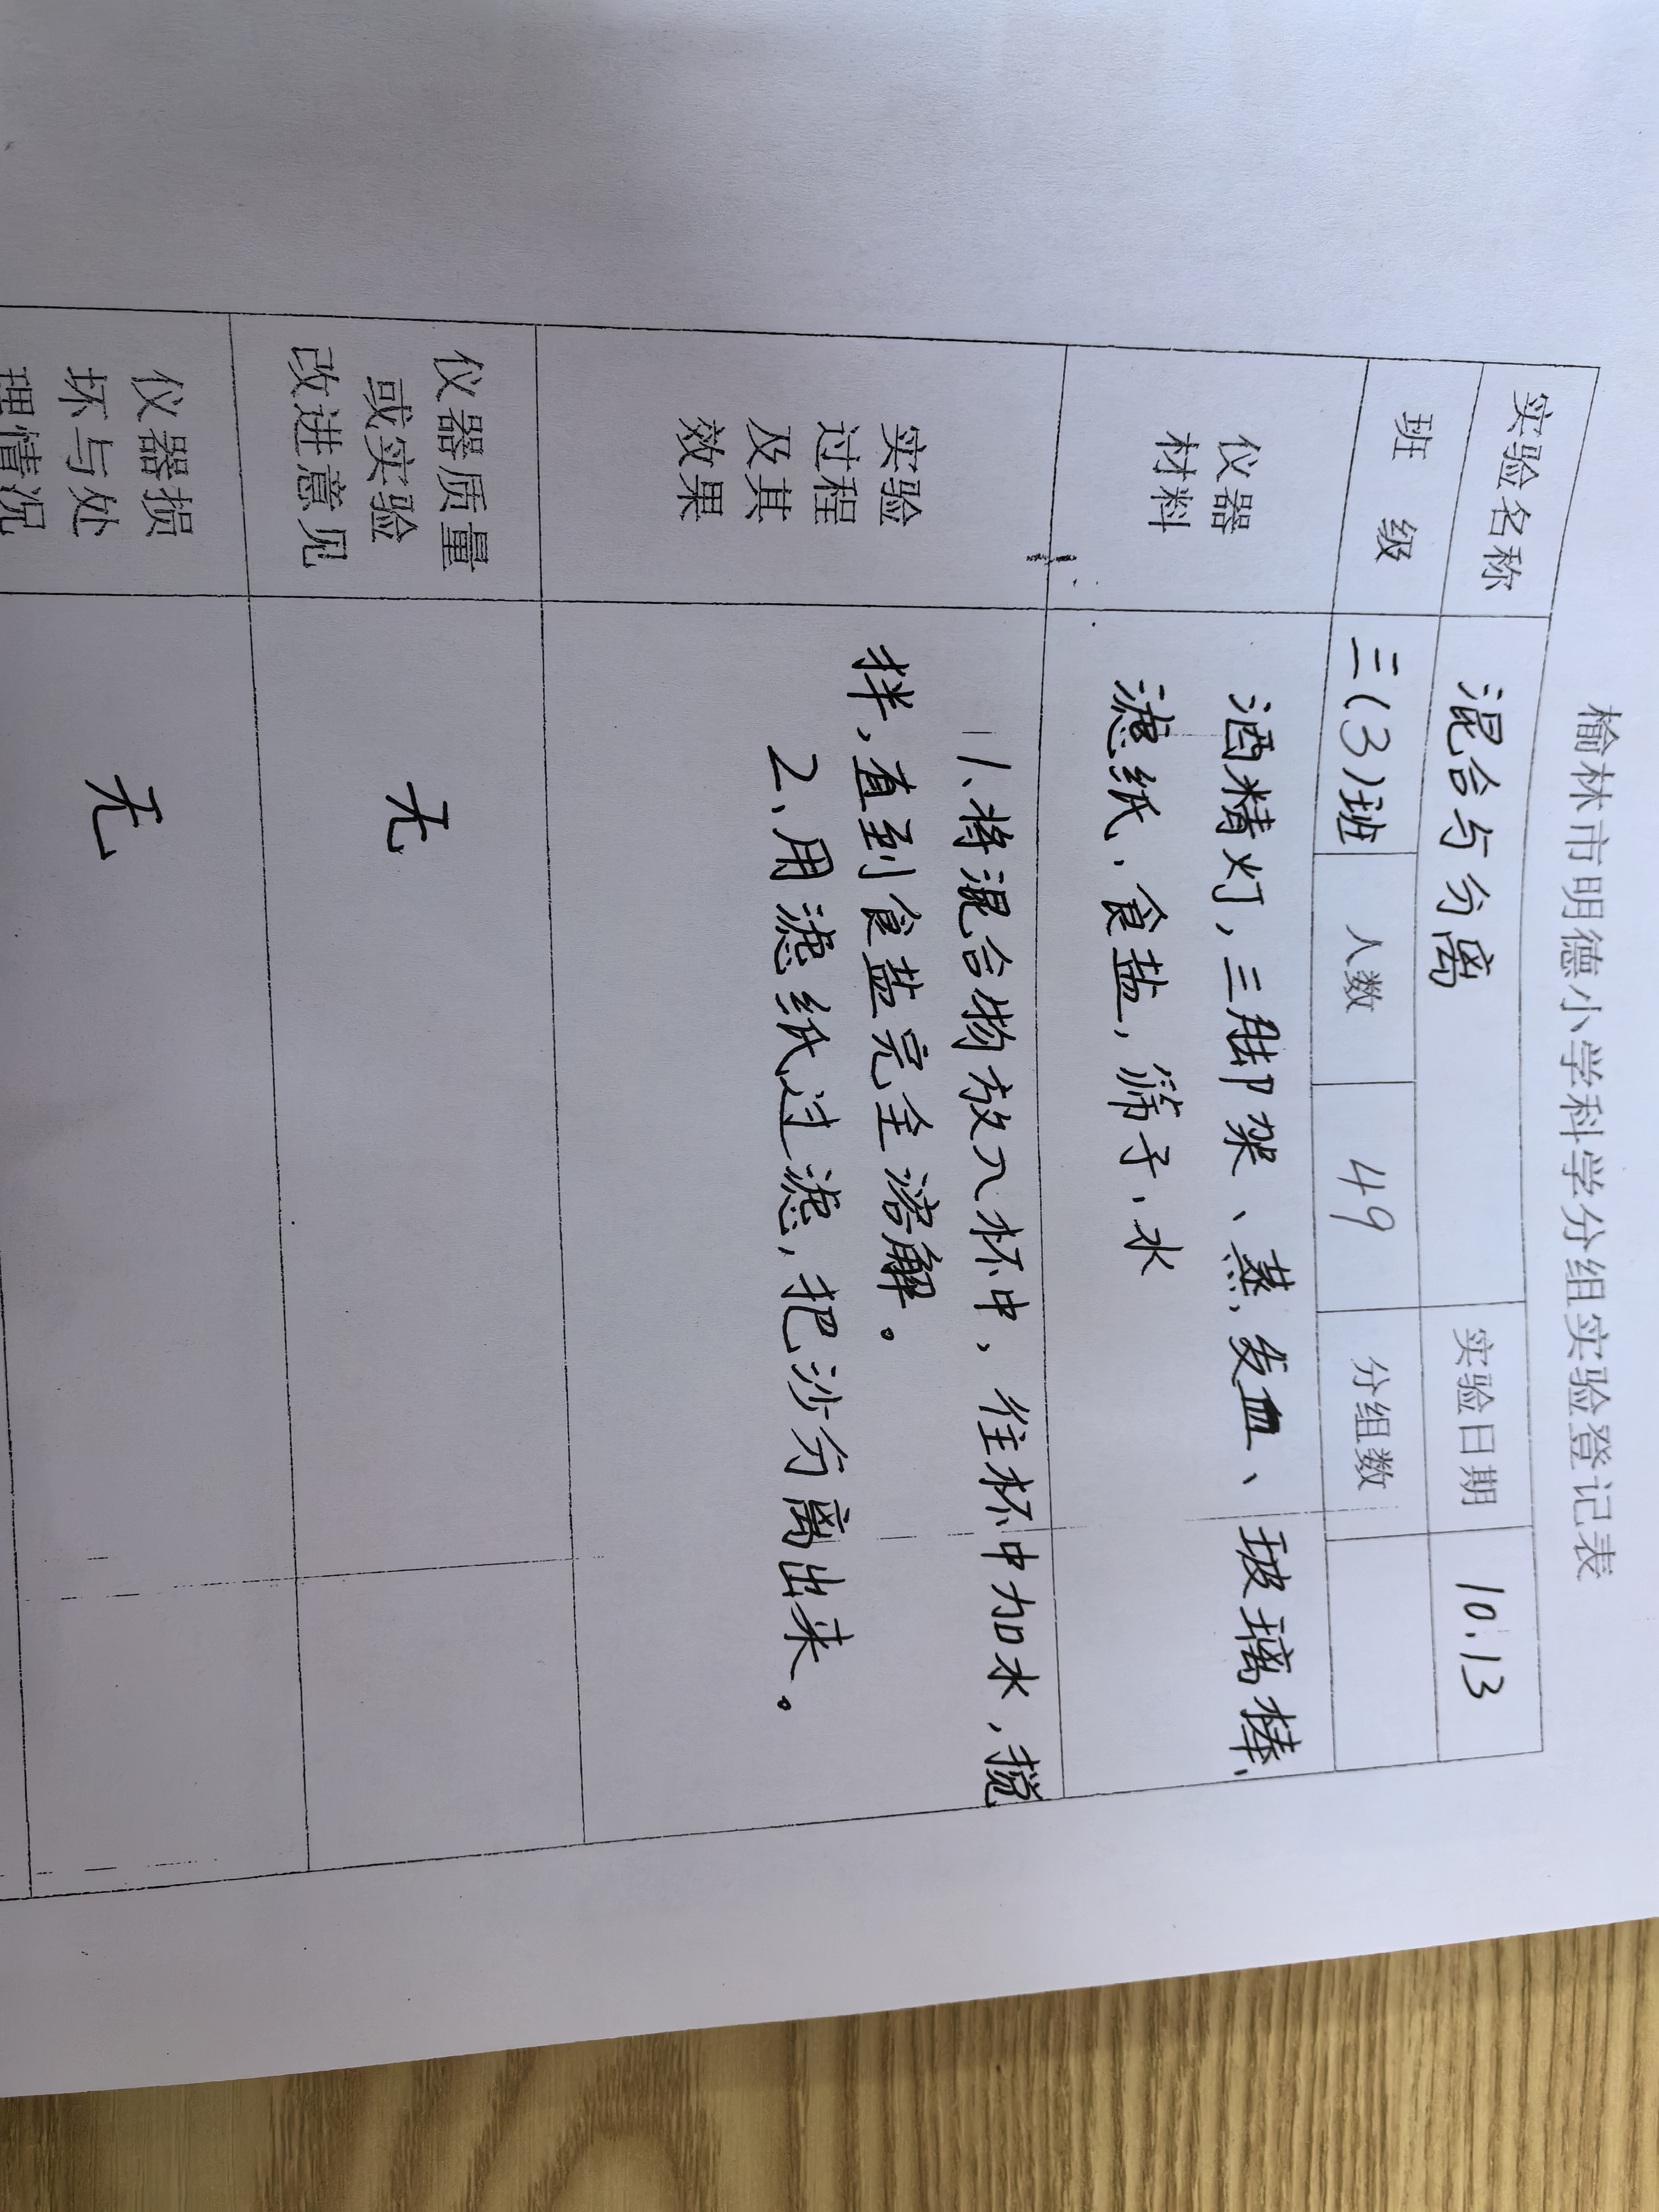 榆林市明德小学科学分组实验登记表
实验名称 混合与分离 实验日期 10.13
班 级 三(3)班 人数 49 分组数
仪器
材料
酒精灯，三脚架、蒸发皿、玻璃棒、
滤纸、食盐，筛子、水
实验
过程
及其
效果
1、将混合物放入杯中，往杯中加水，搅
拌，直到食盐完全溶解。
2、用滤纸过滤，把沙分离出来。
仪器质量
或实验
改进意见
无
仪器损
坏与处
理情况
无